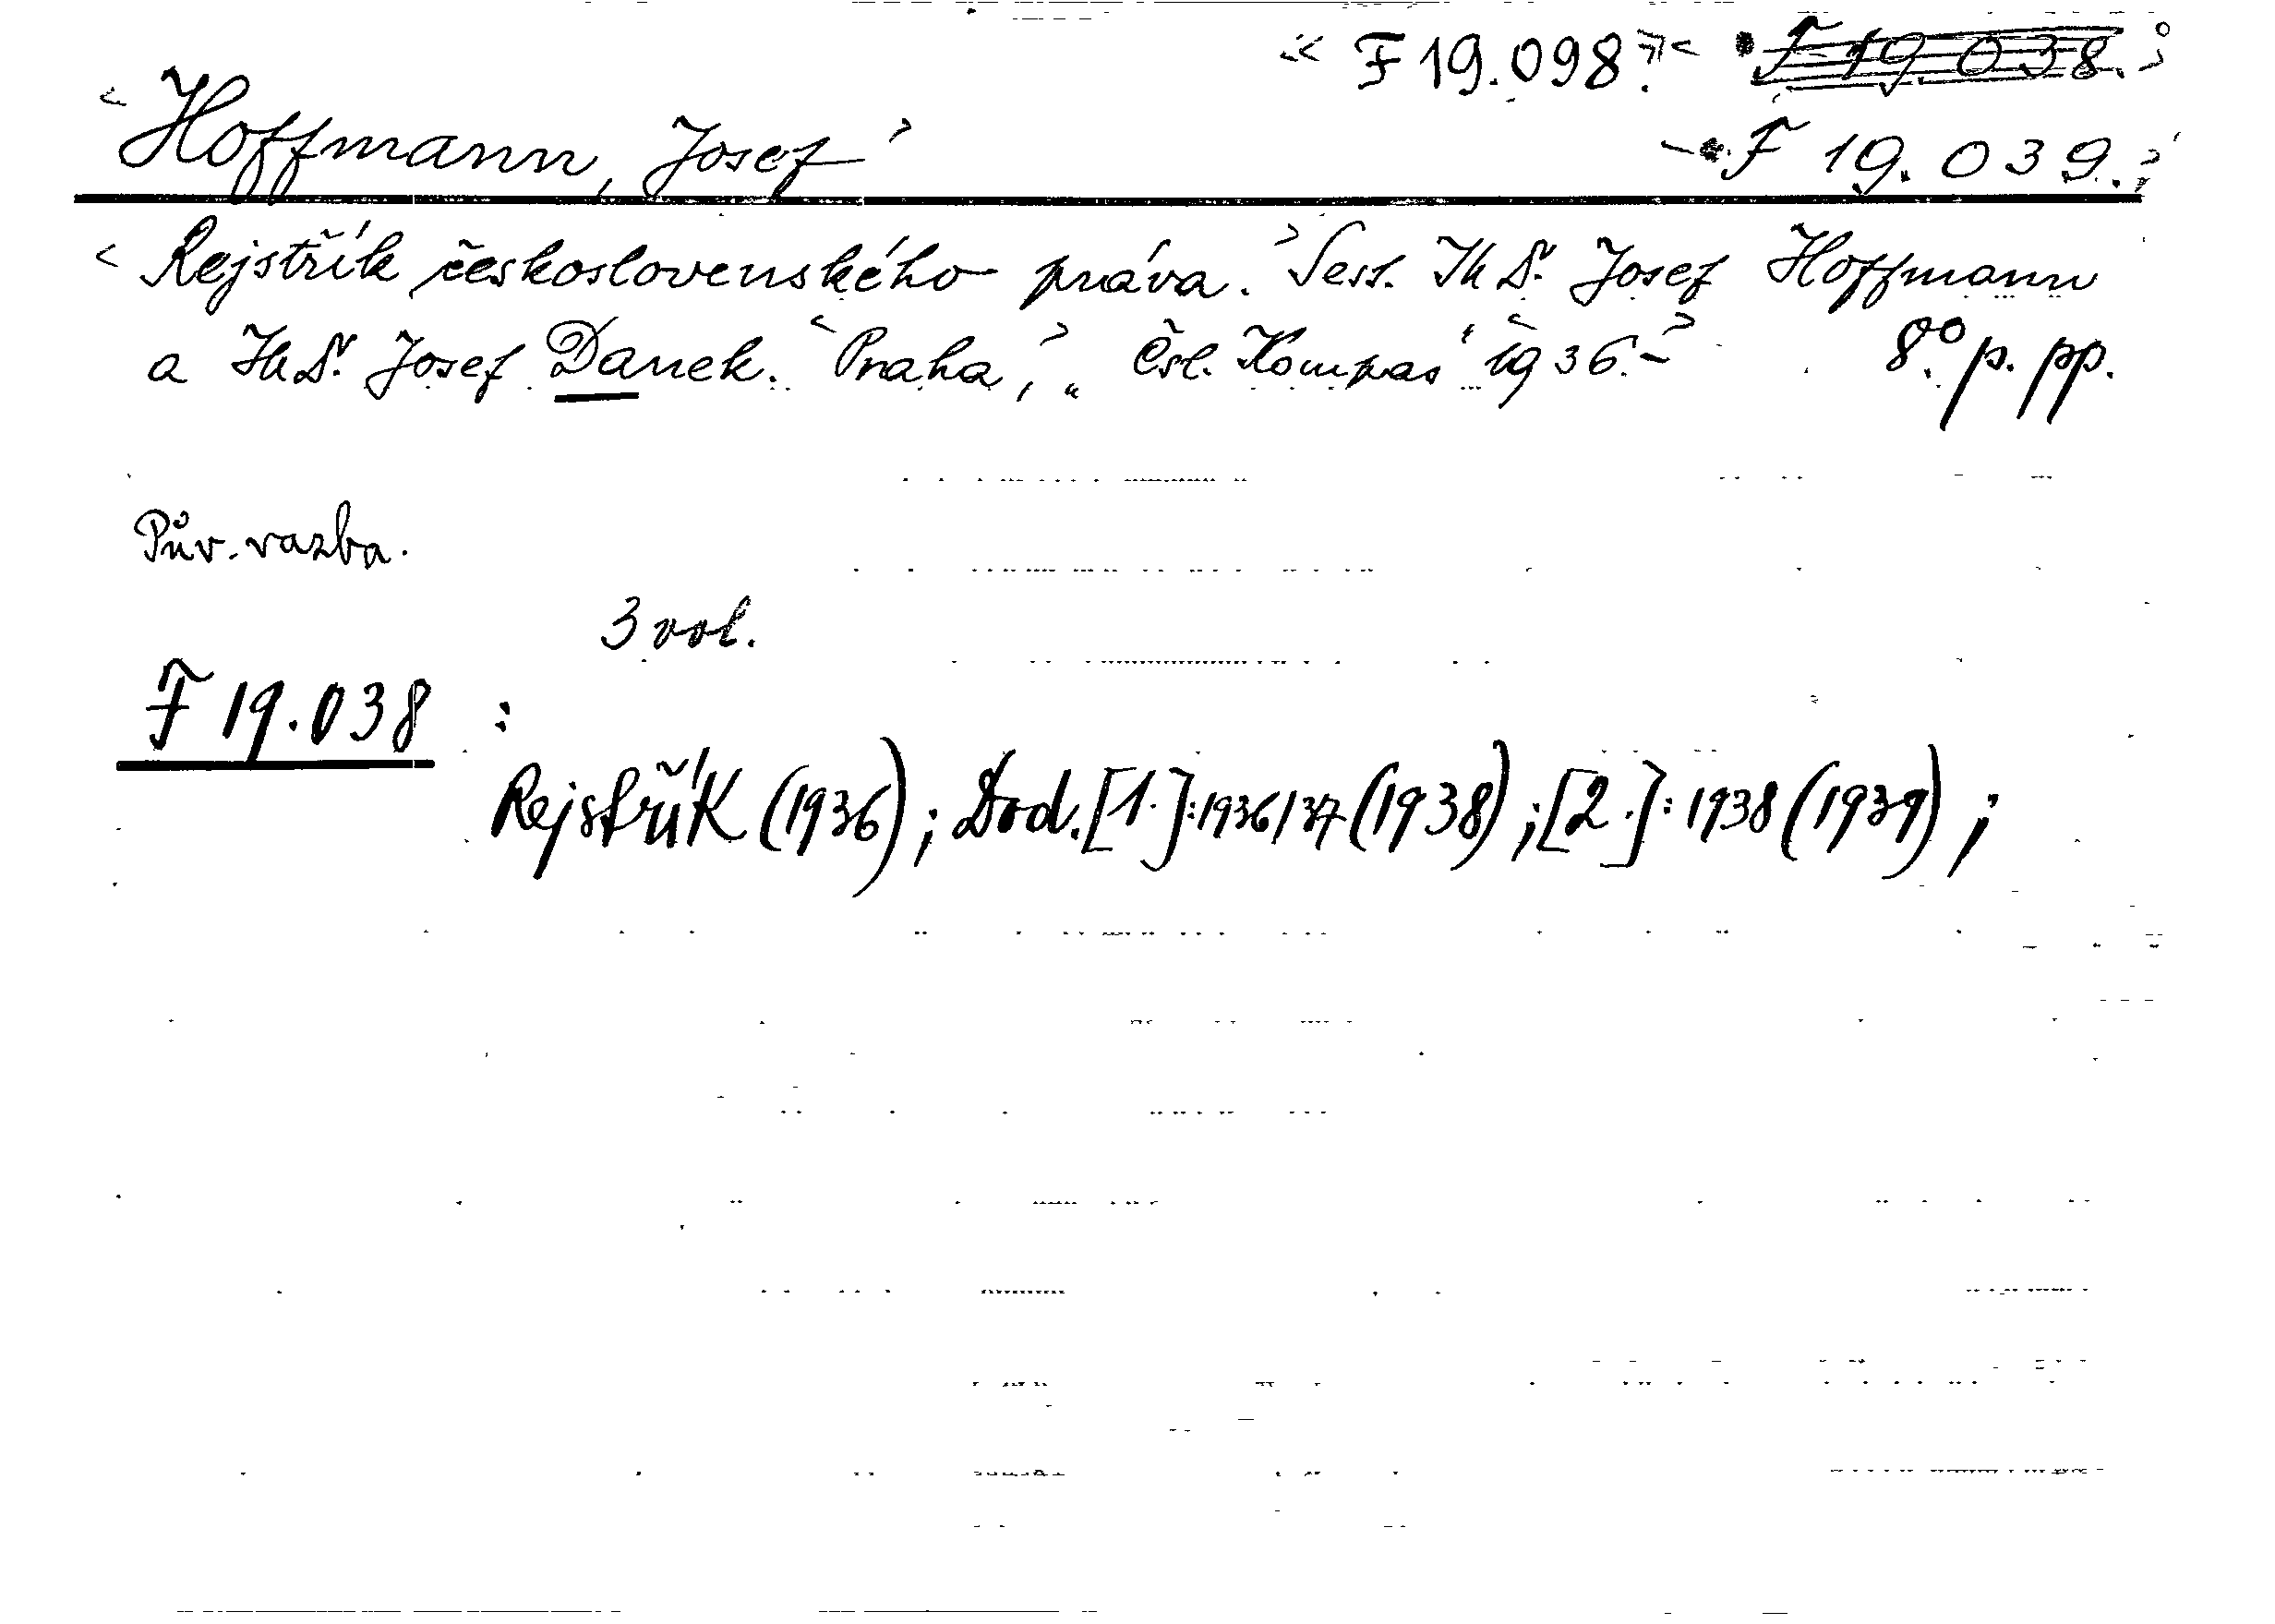 « F 19.098.» < F 19.038.>
<Hoffmann, Josef> < F 19.039.>
<Rejstřík československého práva.> Sest. JUDr. Josef Hoffmann
a JUDr. Josef Danek. <Praha,> „Čsl. Kompas" <1936.-> 8° p. pp.
Pův. vazba.
3 vol.
F 19.038 :
Rejstřík (1936); Dod. [1.]: 1936/37 (1938); [2.]: 1938 (1939);